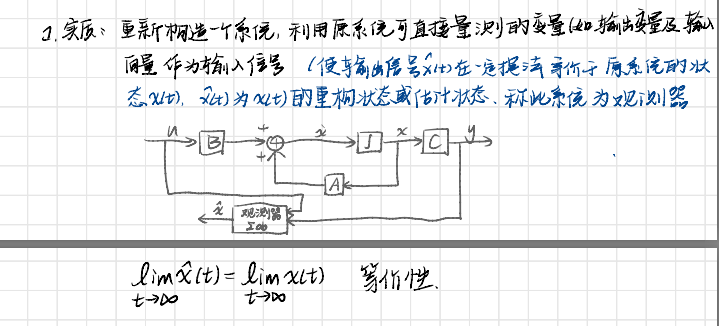 1. 实质: 重新构造一个系统, 利用原系统可直接量测的变量(如输出变量及输入
向量 作为输入信号 (使输出信号x̂(t)在一定提法等价于原系统的状
态x(t), x̂(t)为x(t)的重构状态或估计状态. 称此系统为观测器
u B + + ẋ ∫ x C y
A
x̂ 观测器
Σob
lim x̂(t) = lim x(t) 等价性.
t→∞ t→∞